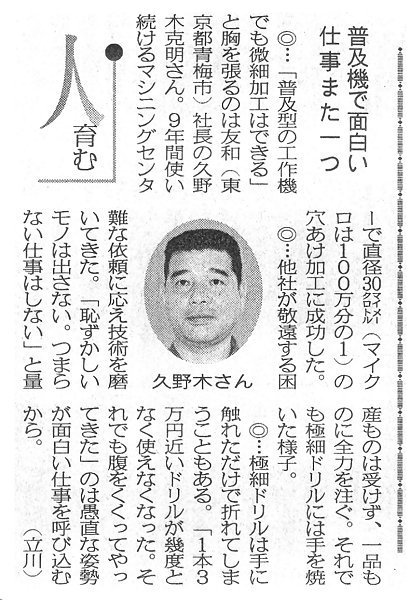 普及機で面白い
仕事また一つ
人
育む
◎…「普及型の工作機
でも微細加工はできる」
と胸を張るのは友和（東
京都青梅市）社長の久野
木克明さん。９年間使い
続けるマシニングセンタ
ーで直径30㍈（マイク
ロは１００万分の１）の
穴あけ加工に成功した。
◎…他社が敬遠する困
難な依頼に応え技術を磨
いてきた。「恥ずかしい
モノは出さない。つまら
ない仕事はしない」と量
久野木さん
産ものは受けず、一品も
のに全力を注ぐ。それで
も極細ドリルには手を焼
いた様子。
◎…極細ドリルは手に
触れただけで折れてしま
うこともある。「１本３
万円近いドリルが幾度と
なく使えなくなった。そ
れでも腹をくくってやっ
てきた」のは愚直な姿勢
が面白い仕事を呼び込む
から。
（立川）